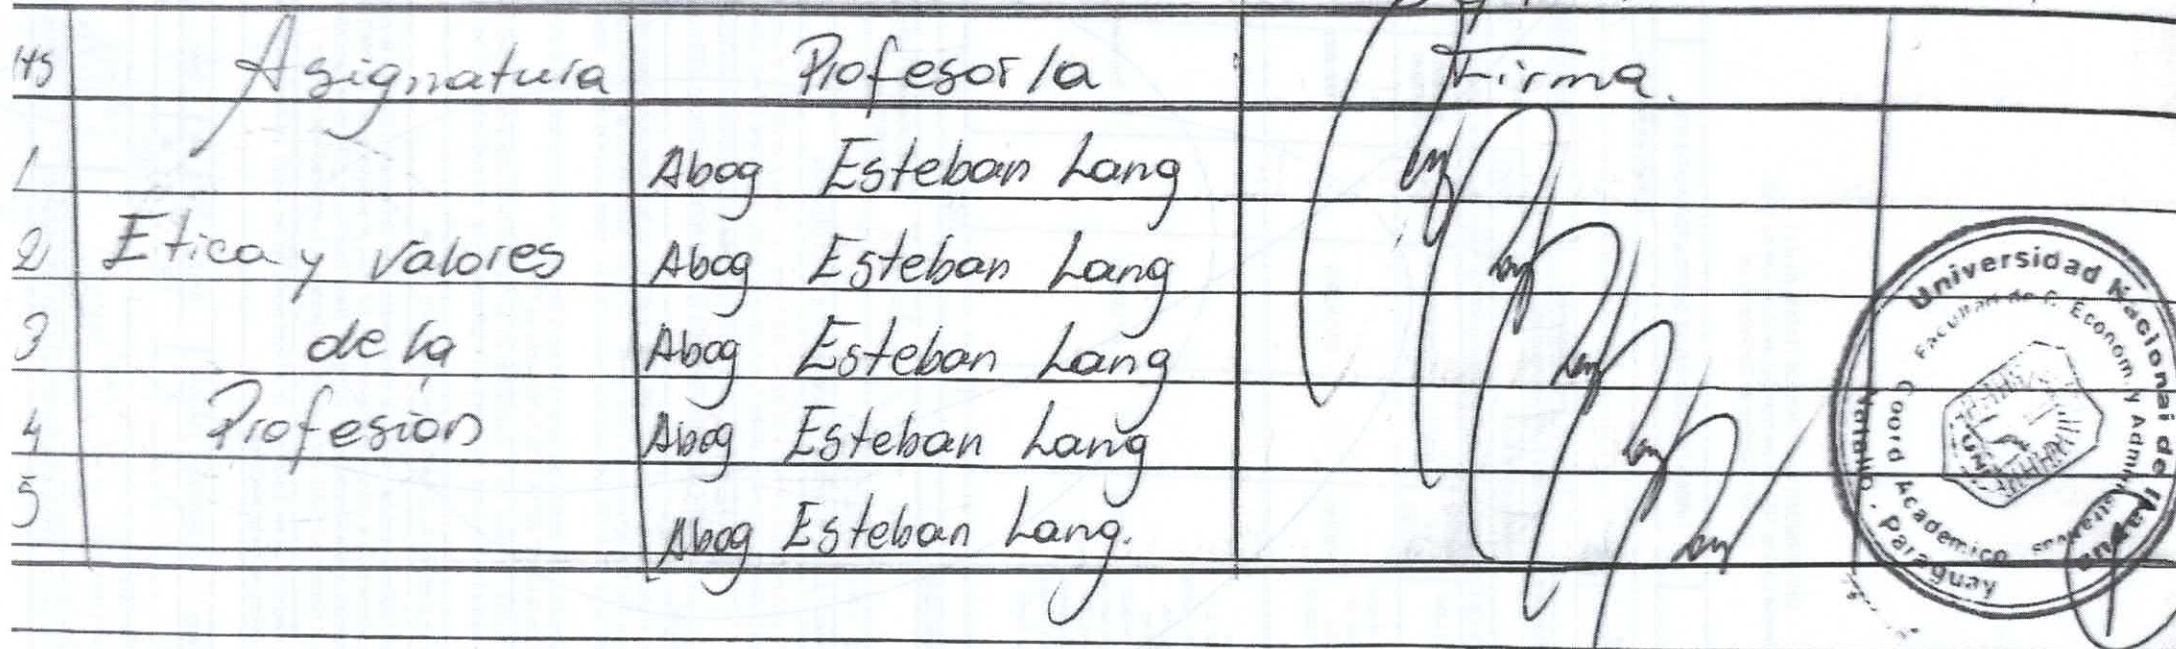 Hs Asignatura Profesor/a Firma.
1 Abog Esteban Lang
2 Etica y valores Abog Esteban Lang
3 de la Abog Esteban Lang
4 Profesión Abog Esteban Lang
5 Abog Esteban Lang.
Universidad Nacional de Itapua
Facultad de C. Econom. y Administrativas
Coord Academico
Natalio - Paraguay